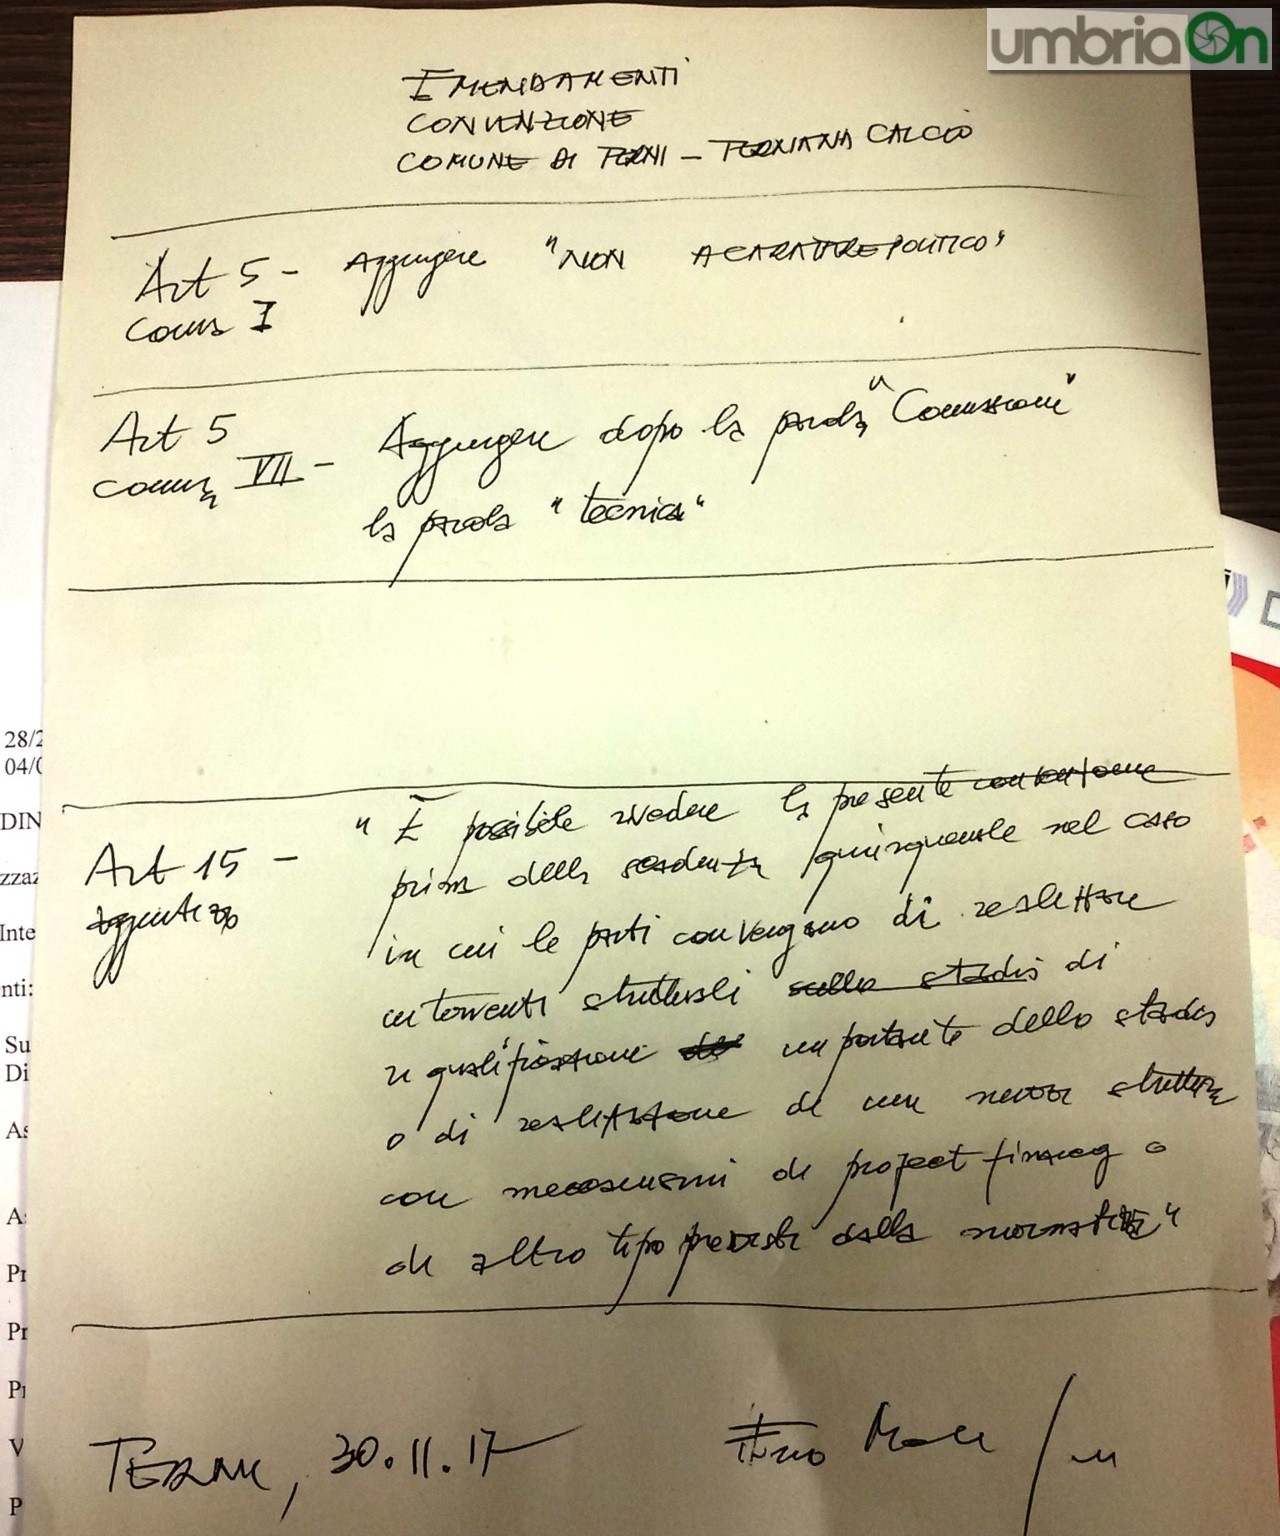 umbriaOn
EMENDAMENTI
CONVENZIONE
COMUNE DI TERNI - TERNANA CALCIO
Art 5 - Aggiungere "NON A CARATTERE POLITICO"
Comma I
Art 5
comma VII - Aggiungere dopo la parola "Commissione"
la parola "tecnica"
Art 15 -
aggiuntivo
" È possibile rivedere la presente convenzione
prima della scadenza quinquennale nel caso
in cui le parti convengano di realizzare
interventi strutturali sullo stadio di
riqualificazione importante dello stadio
o di realizzazione di una nuova struttura
con meccanismi di project financing o
di altro tipo previsti dalla normativa"
TERNI, 30.11.17
28/2
04/0
DIN
zzaz
Inte
nti:
Su
Di
As
As
Pr
Pr
Pr
V
P